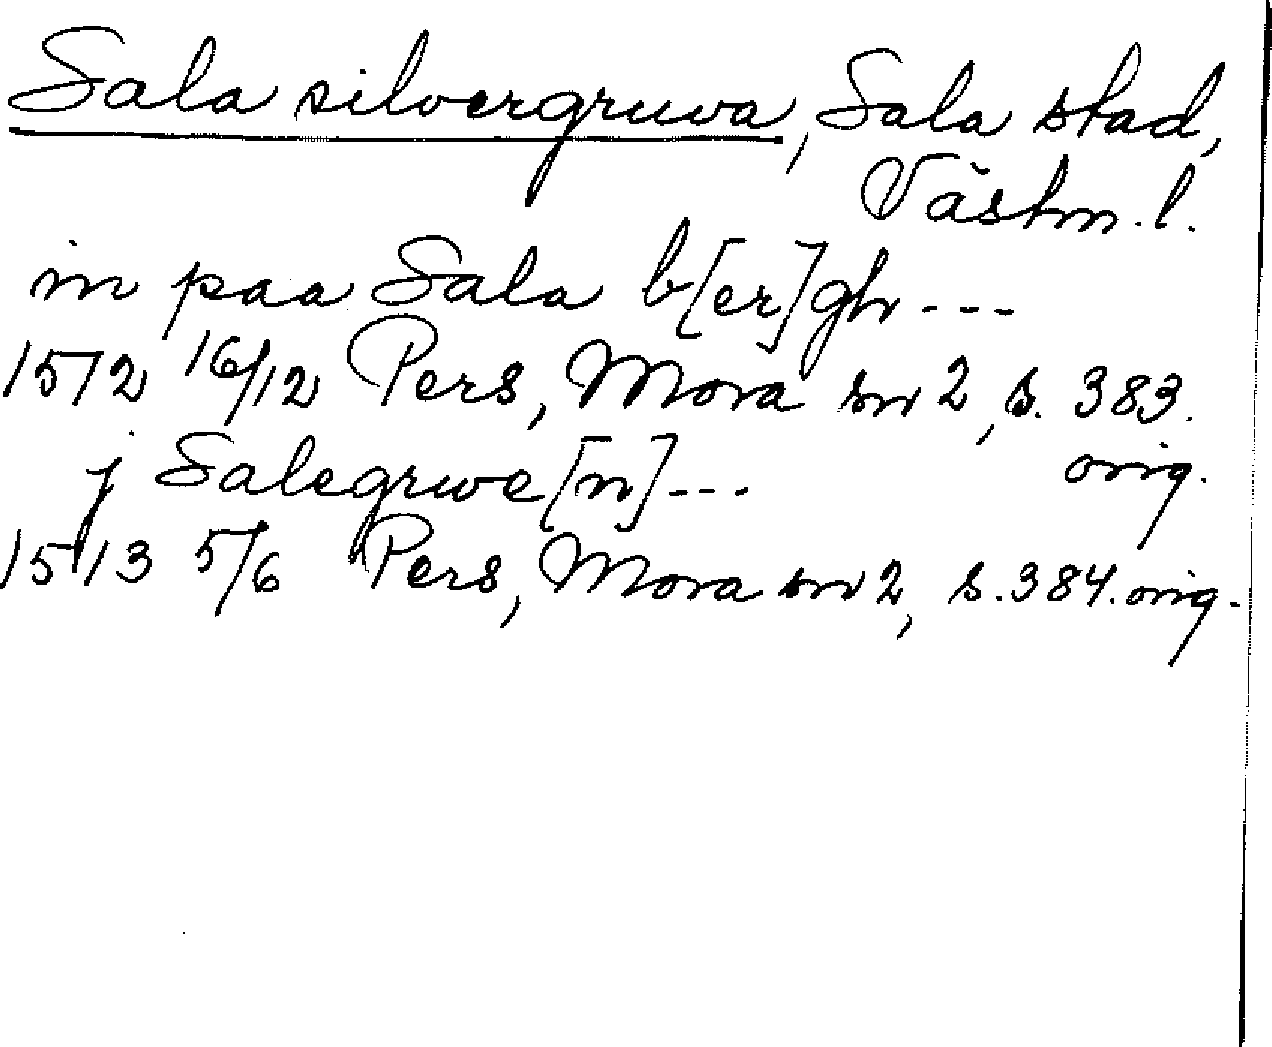 Sala silvergruva, Sala stad,
Västm. l.
in paa Sala b[er]gh ---
1512 16/12 Pers, Mora sn 2, s. 383.
orig.
j Salegrwe[n] ---
1513 5/6 Pers, Mora sn 2, s. 384. orig.